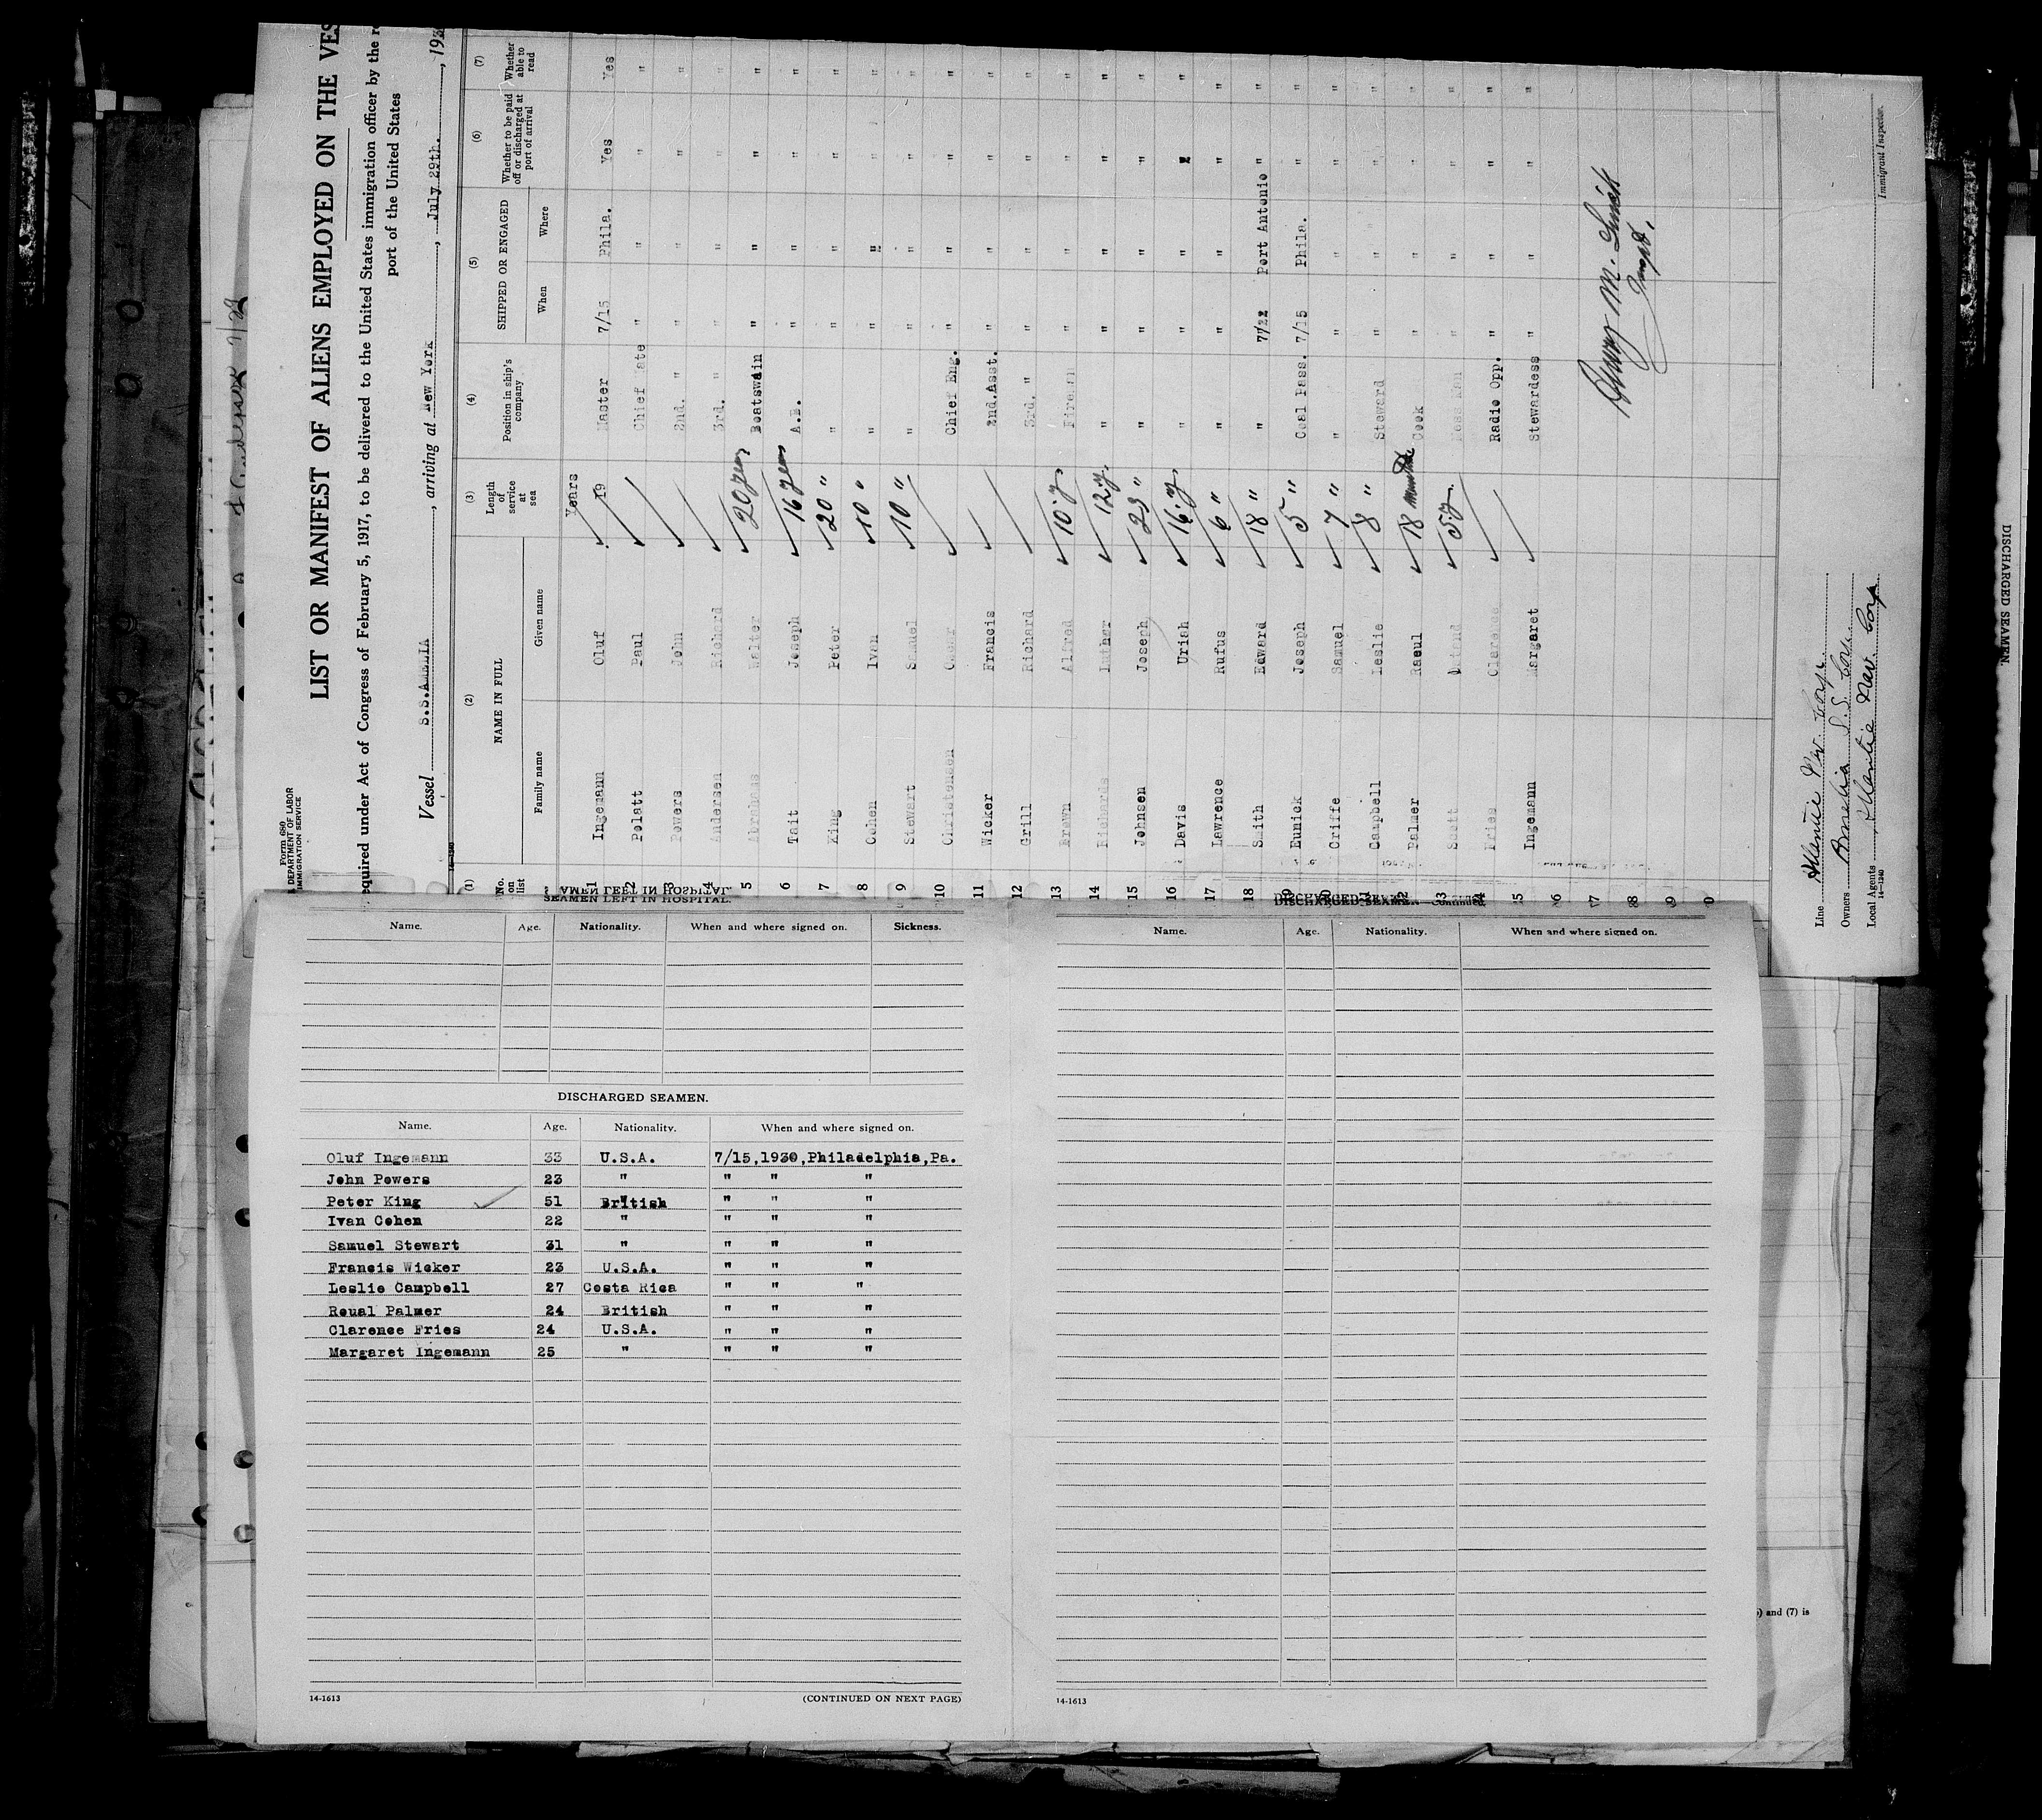 Form 680
DEPARTMENT OF LABOR
IMMIGRATION SERVICE
LIST OR MANIFEST OF ALIENS EMPLOYED ON THE VES
equired under Act of Congress of February 5, 1917, to be delivered to the United States immigration officer by the r
port of the United States
Vessel S.S.AMELIA, arriving at New York, July 29th., 193
(1) (2) (3) (4) (5) (6) (7)
No. on list NAME IN FULL Length of service at sea Position in ship's company SHIPPED OR ENGAGED Whether to be paid off or discharged at port of arrival Whether able to read
Family name Given name When Where
Years
1 Ingemann Oluf 19 Master 7/15 Phila. Yes Yes
2 Polatt Paul Chief Mate " " " "
3 Powers John 2nd. " " " " "
4 Andersen Richard 3rd. " " " " "
5 Abrahams Walter 20 years Boatswain " " " "
6 Tait Joseph 16 years A.B. " " " "
7 King Peter 20 " " " " " "
8 Cohen Ivan 10 " " " " " "
9 Stewart Samuel 10 " " " " " "
10 Christensen Chief Eng. " " " "
11 Wicker Francis 2nd.Asst. " " " "
12 Grill Richard 3rd. " " " " "
13 Brown Alfred 10 y Fireman " " " "
14 Richards Luther 12 y " " " " "
15 Johnsen Joseph 23 " " " " " "
16 Davis Uriah 16 y " " " " "
17 Lawrence Rufus 6 " " " " " "
18 Smith Edward 18 " " 7/22 Port Antonio " "
19 Eunick Joseph 5 " Coal Pass. 7/15 Phila. " "
20 Criffe Samuel 7 " " " " " "
21 Campbell Leslie 8 " Steward " " " "
22 Palmer Raoul 18 Cook " " " "
23 Scott 5 y. Mess Man " " " "
24 Fries Clarence Radio Opp. " " " "
25 Ingemann Margaret Stewardess " " " "
6
7
8
9
0
Immigrant Inspector.
Line
Owners Amelia S.S. Corp.
Local Agents Atlantic Nav. Corp
14—1240
SEAMEN LEFT IN HOSPITAL.
Name. Age. Nationality. When and where signed on. Sickness.
DISCHARGED SEAMEN.
Name. Age. Nationality. When and where signed on.
Oluf Ingemann 33 U.S.A. 7/15,1930,Philadelphia,Pa.
John Powers 23 " " " "
Peter King 51 British " " "
Ivan Cohen 22 " " " "
Samuel Stewart 31 " " " "
Francis Wicker 23 U.S.A. " " "
Leslie Campbell 27 Costa Rica " " "
Roual Palmer 24 British " " "
Clarence Fries 24 U.S.A. " " "
Margaret Ingemann 25 " " " "
14-1613 (CONTINUED ON NEXT PAGE)
DISCHARGED SEAMEN—Continued
Name. Age. Nationality. When and where signed on.
14-1613
DISCHARGED SEAMEN.
) and (7) is